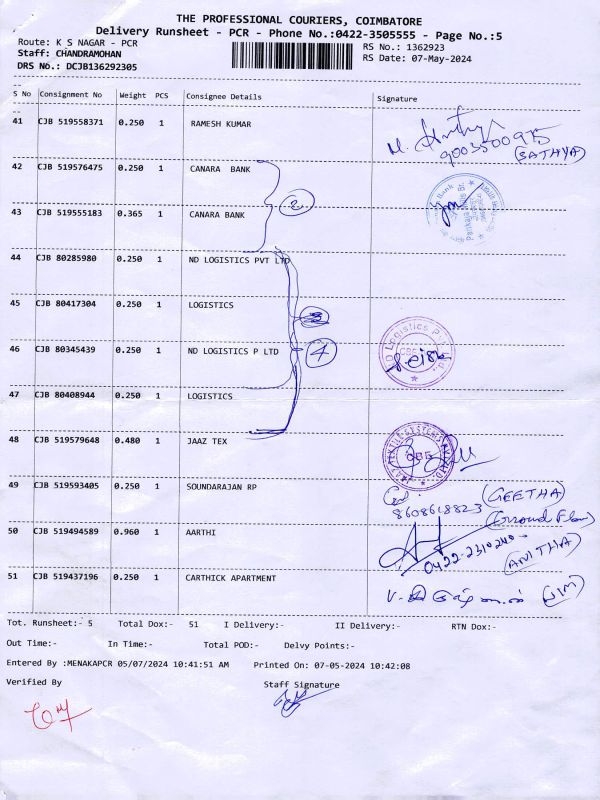 THE PROFESSIONAL COURIERS, COIMBATORE
Delivery Runsheet - PCR - Phone No.:0422-3505555 - Page No.:5
Route: K S NAGAR - PCR RS No.: 1362923
Staff: CHANDRAMOHAN RS Date: 07-May-2024
DRS No.: DCJB136292305
S No Consignment No Weight PCS Consignee Details Signature
41 CJB 519558371 0.250 1 RAMESH KUMAR
9003500975
(SATHYA)
42 CJB 519576475 0.250 1 CANARA BANK
2
43 CJB 519555183 0.365 1 CANARA BANK
44 CJB 80285980 0.250 1 ND LOGISTICS PVT LTD
45 CJB 80417304 0.250 1 LOGISTICS
46 CJB 80345439 0.250 1 ND LOGISTICS P LTD 4
47 CJB 80408944 0.250 1 LOGISTICS
48 CJB 519579648 0.480 1 JAAZ TEX
49 CJB 519593405 0.250 1 SOUNDARAJAN RP (GEETHA)
8608618823
50 CJB 519494589 0.960 1 AARTHI
0422-2310240
(ANITHA)
51 CJB 519437196 0.250 1 CARTHICK APARTMENT
Tot. Runsheet:- 5 Total Dox:- 51 I Delivery:- II Delivery:- RTN Dox:-
Out Time:- In Time:- Total POD:- Delvy Points:-
Entered By :MENAKAPCR 05/07/2024 10:41:51 AM Printed On: 07-05-2024 10:42:08
Verified By Staff Signature